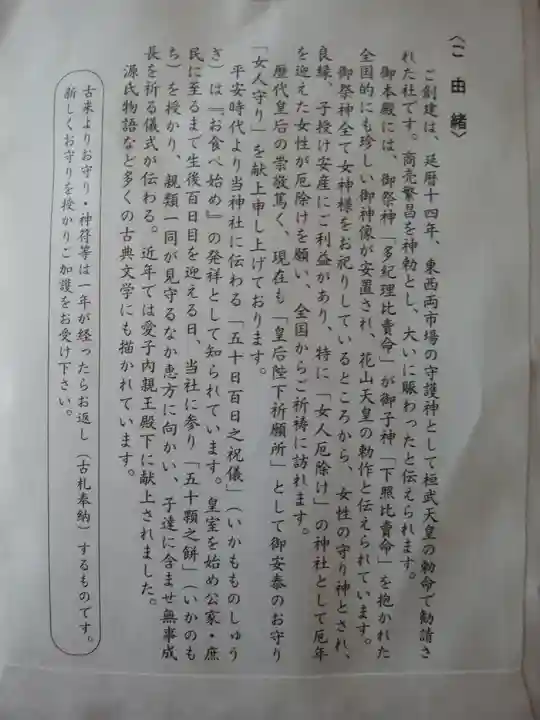 〈ご由緒〉
ご創建は、延暦十四年、東西両市場の守護神として桓武天皇の勅命で勧請さ
れた社です。商売繁昌を神勅とし、大いに賑わったと伝えられます。
御本殿には、御祭神「多紀理比賣命」が御子神「下照比賣命」を抱かれた
全国的にも珍しい御神像が安置され、花山天皇の勅作と伝えられています。
御祭神全て女神様をお祀りしているところから、女性の守り神とされ、
良縁、子授け安産にご利益があり、特に「女人厄除け」の神社として厄年
を迎えた女性が厄除けを願い、全国からご祈祷に訪れます。
歴代皇后の崇敬篤く、現在も「皇后陛下祈願所」として御安泰のお守り
「女人守り」を献上申し上げております。
平安時代より当神社に伝わる「五十日百日之祝儀」(いかもものしゅう
ぎ)は『お食べ始め』の発祥として知られています。皇室を始め公家・庶
民に至るまで生後百日目を迎える日、当社に参り「五十顆之餅」(いかのも
ち)を授かり、親類一同が見守るなか恵方に向かい、子達に含ませ無事成
長を祈る儀式が伝わる。近年では愛子内親王殿下に献上されました。
源氏物語など多くの古典文学にも描かれています。
古来よりお守り・神符等は一年が経ったらお返し(古札奉納)するものです。
新しくお守りを授かりご加護をお受け下さい。